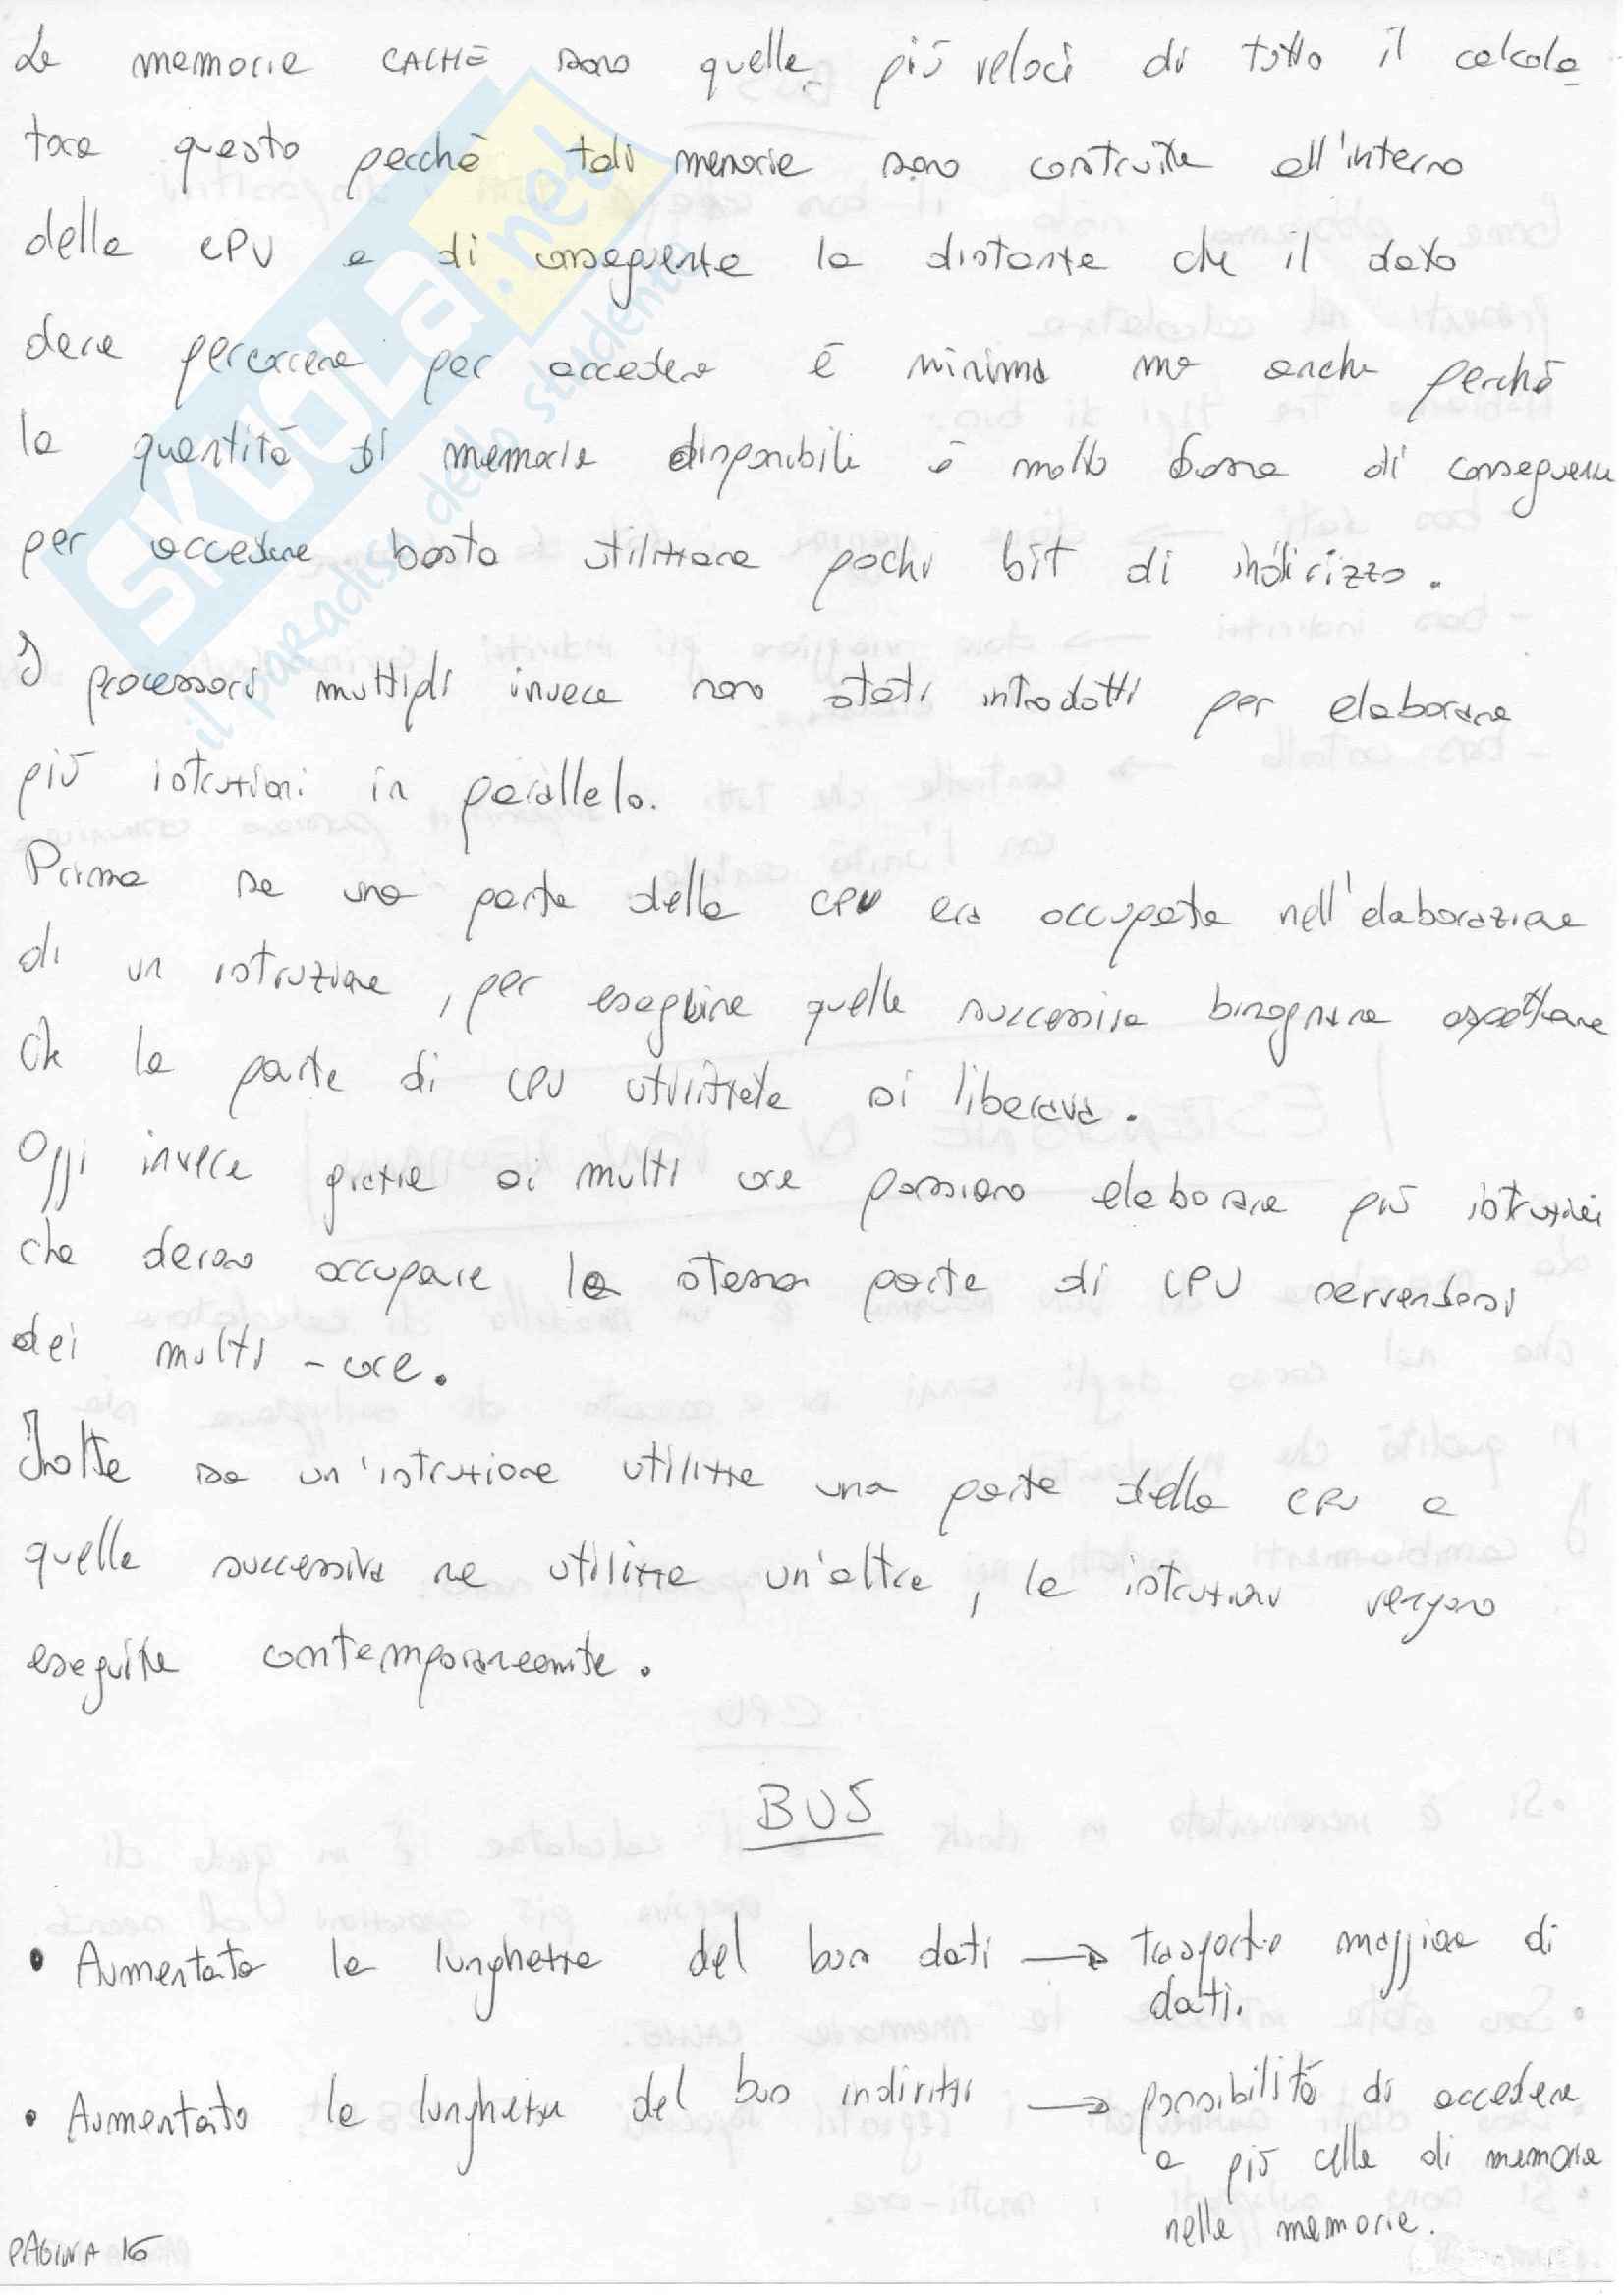 Le memorie CACHE sono quelle più veloci di tutto il calcola
tore questo perchè tali memorie sono costruite all'interno
della CPU e di conseguenza la distanza che il dato
deve percorrere per accedere è minima ma anche perchè
la quantità di memoria disponibili è molto bassa di conseguenza
per accedere basta utilizzare pochi bit di indirizzo.
I processori multipli invece sono stati introdotti per elaborare
più istruzioni in parallelo.
Prima se una parte della CPU era occupata nell'elaborazione
di un istruzione, per eseguire quella successiva bisognava aspettare
che la parte di CPU utilizzata si liberava.
Oggi invece grazie ai multi core possiamo elaborare più istruzioni
che devono occupare la stessa parte di CPU servendosi
dei multi-core.
Inoltre se un'istruzione utilizza una parte della CPU e
quella successiva ne utilizza un'altra, le istruzioni vengono
eseguite contemporaneamente.
BUS
• Aumentata la lunghezza del bus dati → trasporto maggiore di
dati.
• Aumentato la lunghezza del bus indirizzi → possibilità di accedere
a più celle di memoria
nella memoria.
PAGINA 16
SKUOLA.net
il paradiso dello studente